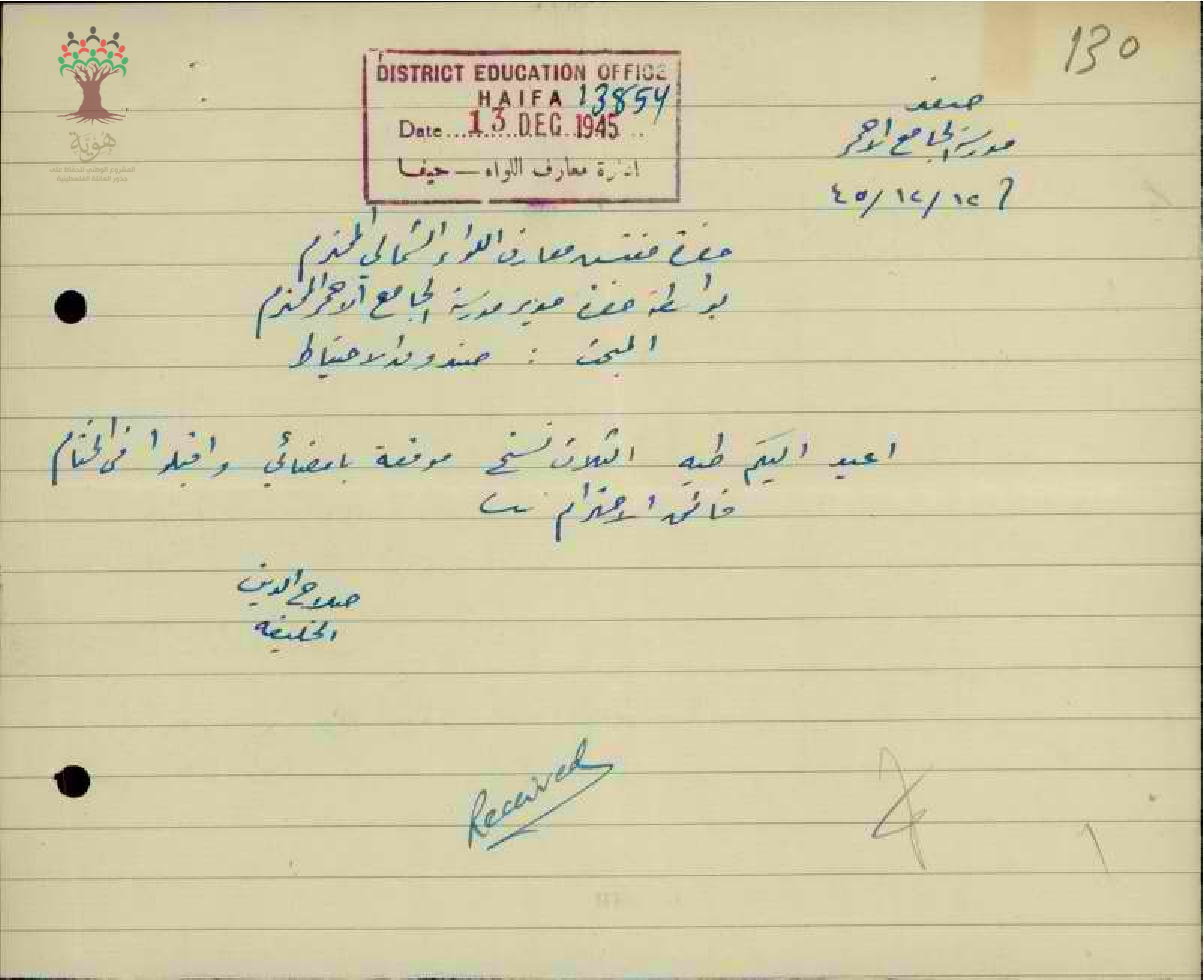 130
DISTRICT EDUCATION OFFICE
HAIFA 13854
Date....13 DEC 1945..
ادارة معارف اللواء — حيفا
هَوِيَّة
المشروع الوطني للحفاظ على
جذور العائلة الفلسطينية
صفد
مدرسة الجامع الاحمر
٤٥/١٢/١٢
حضرة مفتش معارف اللواء الشمالي المحترم
بواسطة حضرة مدير مدرسة الجامع الاحمر المحترم
المبحث : صندوق الاحتياط
اعيد اليكم طيه الثلاث نسخ موقعة بامضائي واقبلوا في الختام
فائق الاحترام
صلاح الدين
الخليفه
Received